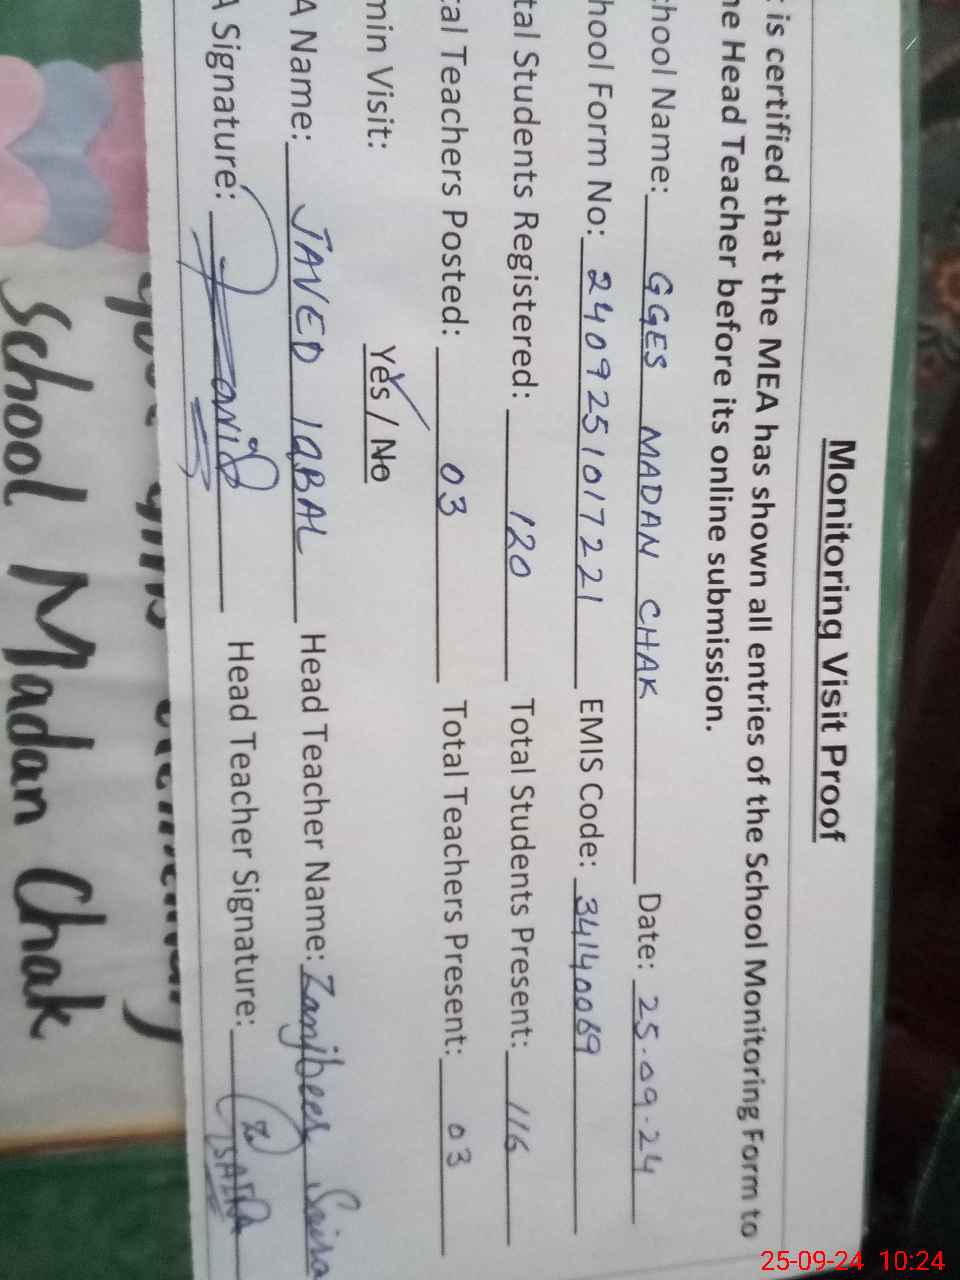 Monitoring Visit Proof
t is certified that the MEA has shown all entries of the School Monitoring Form to
he Head Teacher before its online submission.
chool Name: GGES MADAN CHAK Date: 25.09.24
hool Form No: 2409251017221 EMIS Code: 34140069
tal Students Registered: 120 Total Students Present: 116
tal Teachers Posted: 03 Total Teachers Present: 03
min Visit: Yes / No
A Name: JAVED IQBAL Head Teacher Name: Zanjbeel Saira
A Signature: Head Teacher Signature: SAIRA
School Madan Chak
25-09-24 10:24